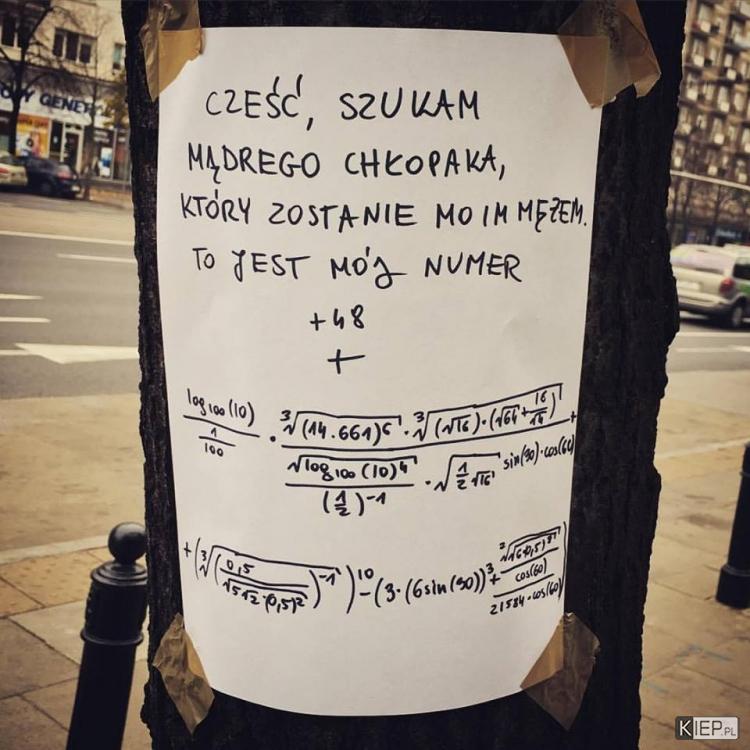 OWY GENER
CZEŚĆ, SZUKAM
MĄDREGO CHŁOPAKA,
KTÓRY ZOSTANIE MOIM MĘŻEM.
TO JEST MÓJ NUMER
+48
+
log100(10) / (1/100) · (∛(14.661)⁶ · ∛((√16)·(√64+16/√4))) / (√log100(10)⁴ / (1/2)⁻¹ · √(1/2 √16) sin(90)·cos(60)) +
+(∛(0,5 / √512·(0,5)²)⁻¹)¹⁰ -(3·(6sin(90))³ +
cos(60)
21584·cos(60)
KIEP.PL